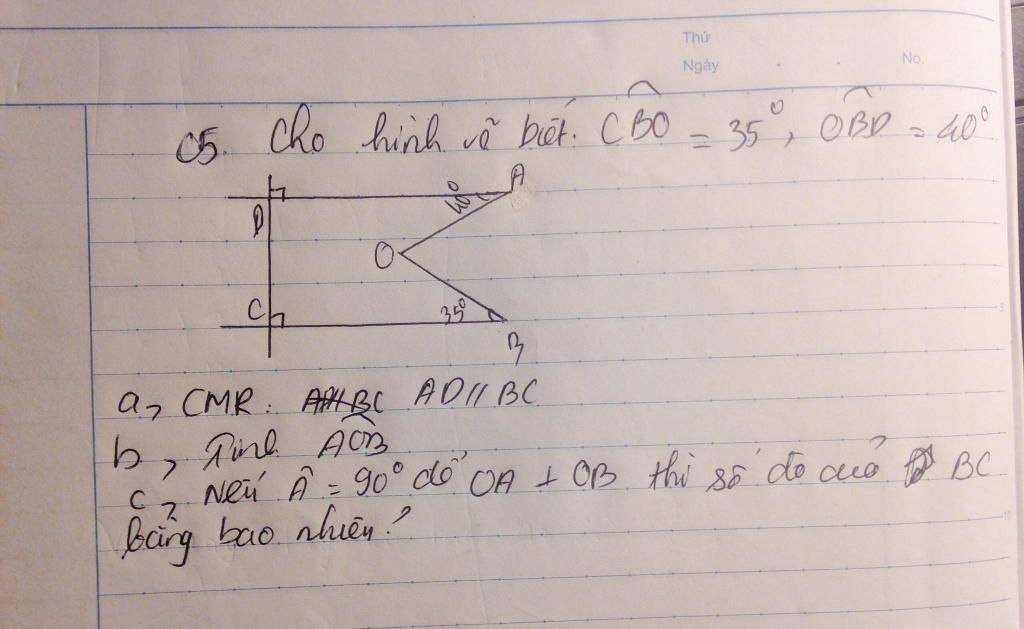 Thứ
Ngày No.
C5. Cho hình vẽ biết. CBO = 35°, OBD = 40°
A
40°
D
O
C
35°
B
a, CMR: AD//BC
b, Tính AOB
c, Nếu Â = 90° để OA ⊥ OB thì số đo của BC
bằng bao nhiêu?